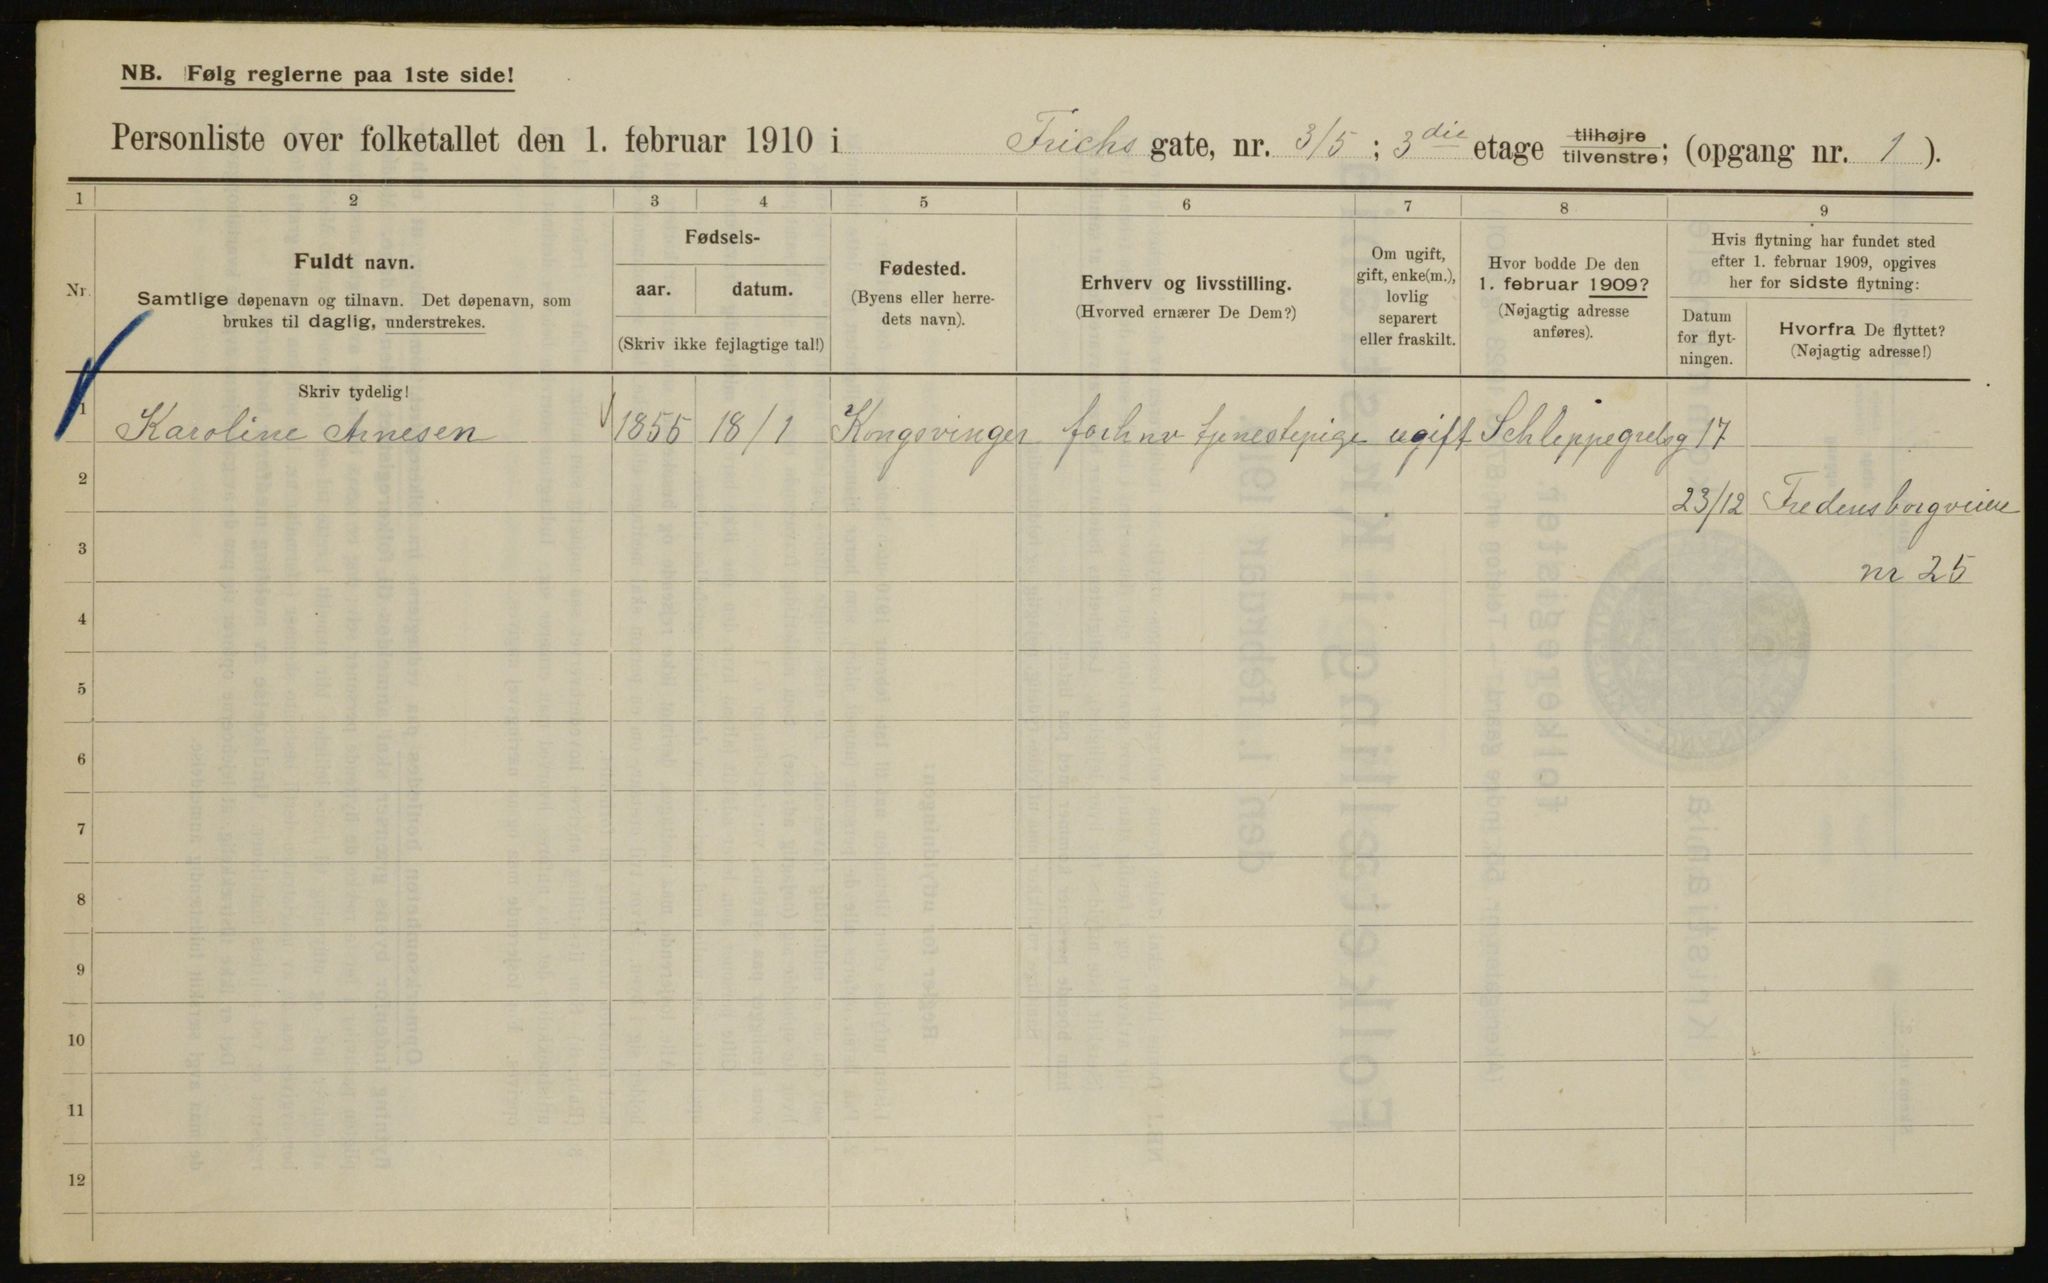 NB. Følg reglerne paa 1ste side!
Personliste over folketallet den 1. februar 1910 i Frichs gate, nr. 3/5 ; 3die etage tilhøjre tilvenstre; (opgang nr. 1 ).
1 2 3 4 5 6 7 8 9
Nr.
Fuldt navn.
Samtlige døpenavn og tilnavn. Det døpenavn, som
brukes til daglig, understrekes.
Fødsels-
aar. datum.
(Skriv ikke fejlagtige tal!)
Fødested.
(Byens eller herre-
dets navn).
Erhverv og livsstilling.
(Hvorved ernærer De Dem?)
Om ugift,
gift, enke(m.),
lovlig
separert
eller fraskilt.
Hvor bodde De den
1. februar 1909?
(Nøjagtig adresse
anføres).
Hvis flytning har fundet sted
efter 1. februar 1909, opgives
her for sidste flytning:
Datum
for flyt-
ningen.
Hvorfra De flyttet?
(Nøjagtig adresse!)
Skriv tydelig!
1 Karoline Arnesen 1855 18/1 Kongsvinger forhnv tjenestepige ugift Schleppegrelsg 17
2 23/12 Fredensborgveien
3 nr 25
4
5
6
7
8
9
10
11
12